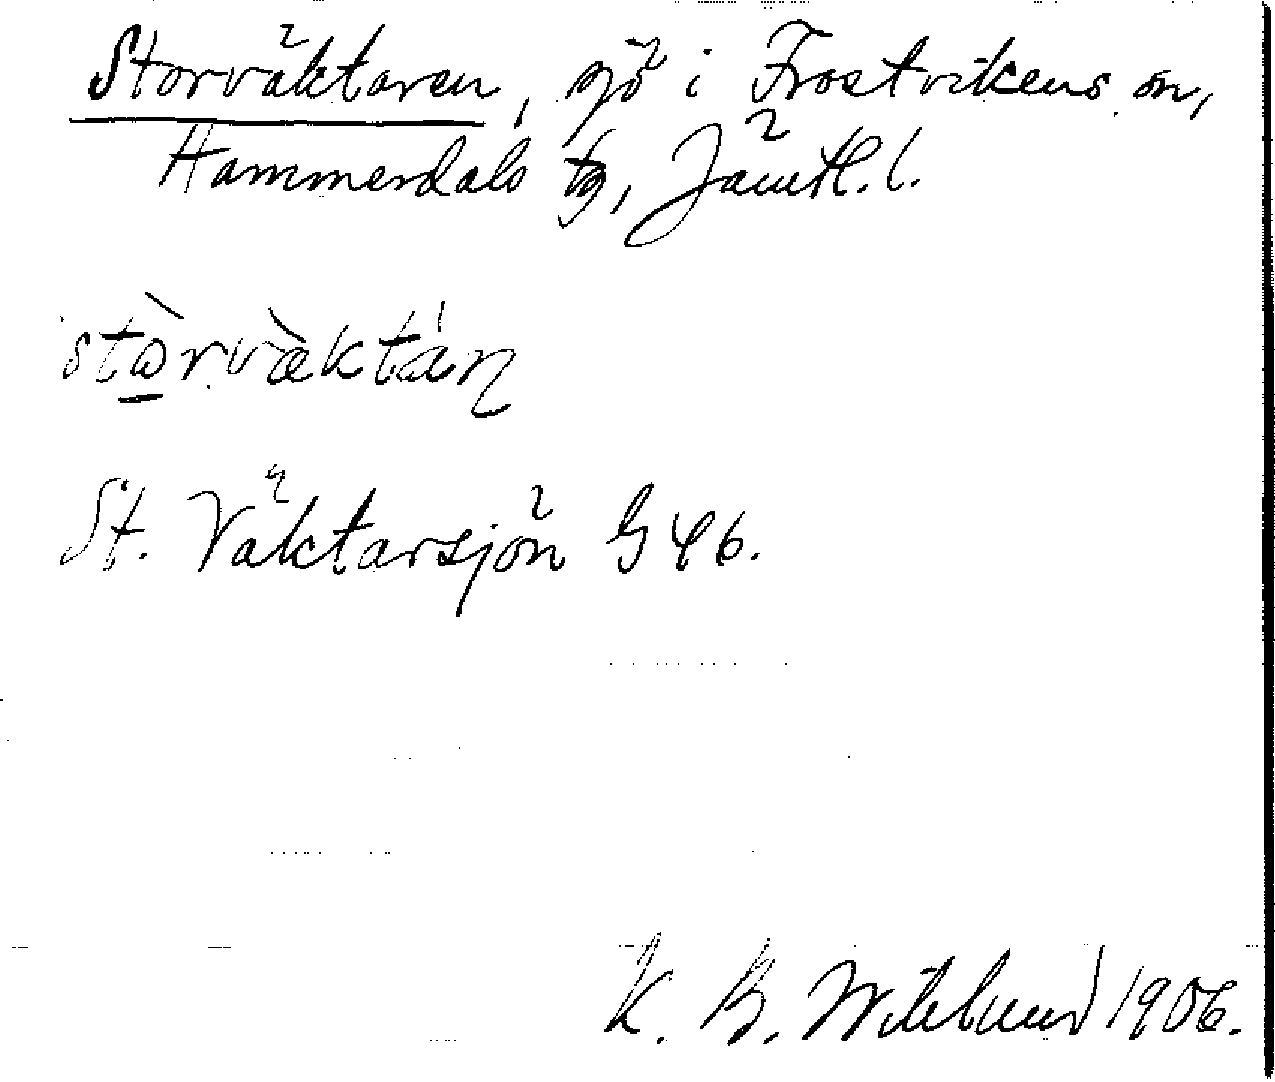 Storväktaren, sjö i Frostvikens sn,
Hammerdals tg, Jämtl. l.
stɷ̀rvæ̀ktán
St. Väktarsjön G 46.
K. B. Wiklund 1906.